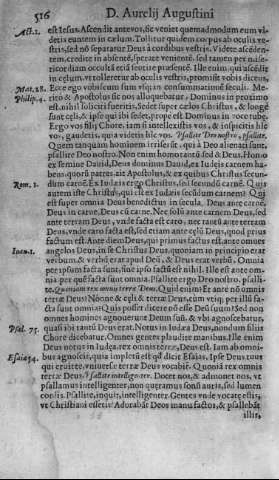 516 D. Aurelij Augustini
Act.1. est Iesus. Ascendit ante vos, sic veniet quemadmodum eum vi-
detis euntem in cælum. Tollitur quidem corpus ab oculis ve-
stris, sed nō separatur Deus à cordibus vestris. Videte ascenden-
tem, credite in absentē, sperate venientē: sed tamen per miseri-
cordiam occultā etiā sentite præsentē. Ille enim, qui ascēdit
in cælum, vt tolleretur ab oculis vestris, promisit vobis dicens,
Mat.28. Ecce ego vobiscum sum vsque in consummationē seculi. Me-
Philip.4. ritò & Apostolus sic nos alloquebatur, Dominus in proximo
est, nihil soliciti fueritis. Sedet super cælos Christus, & longè
sunt cæli, & ipse qui ibi sedet, prope est. Dominus in
Ergo vos filij Chore, iam si intellexistis vos, & inspicitis hîc
vos, gaudetis, quia videtis hîc vos. Psallite Deo nostro, psallite.
Quem tanquam hominem irriserunt, qui à Deo alienati sunt,
psallite Deo nostro. Non enim homo tantū sed & Deus. Homo
ex semine Dauid, Deus dominus Dauid, ex Iudæis carnem ha-
bens: quorū patres, ait Apostolus, & ex quibus Christus secun-
Rom.1. dum carnē. Ex Iudæis ergo Christus, sed secundū carnē. Quis
autem iste Christus, qui est ex Iudæis secūdum carnem? Qui
est super omnia Deus benedictus in secula. Deus ante carnē,
Deus in carne, Deus cū carne. Nec solū ante carnem Deus, sed
ante terram Deus, vnde facta est caro: nec tantū ante terram
Deus, vnde caro facta est, sed etiam ante cælū Deus, quod prius
factum est. Ante diem Deus, qui primus factus est, ante omnes
Ioan.1. angelos Deus, ipse Christus Deus, quoniam in principio erat
verbum, & verbū erat apud Deū, & Deus erat verbū. Omnia
per ipsum facta sunt, & sine ipso factū est nihil. Ille est ante om-
nia per quē facta sunt omnia. Psallite ergo Deo nostro, psalli-
te. Quoniam rex omnis terræ, Deus. Quid enim? Et ante nō omnis
terræ Deus? Nónne & cæli & terræ Deus, cùm vtique per illū fa-
cta sunt omnia? Quis posset dicere nō esse Deū suum? Sed non
omnes homines agnouerunt Deum suū, & vbi agnoscebatur,
Psal.75. quasi ibi tantū Deus erat. Notus in Iudæa Deus, nondum filiis
Chore dicebatur, Omnes gentes plaudite manibus. Ille enim
Deus notus in Iudæa, rex omnis terræ, Deus est. Iam ab omni-
Esaiæ 54. bus agnoscitur, quia impletū est qd dicit Esaias, Ipse Deus tuus
qui eruit te, vniuersæ terræ Deus vocabitur. Quoniā rex omnis
terræ Deus. Psallite intelligenter. Docet nos, & admonet nos, vt
psallamus intelligenter, non quæramus sonū auris, sed lumen
cordis. Psallite, inquit, intelligenter. Gentes vnde vocatę estis,
vt Christiani essetis? Adorabāt Deos manufactos, & psallebāt
illis,